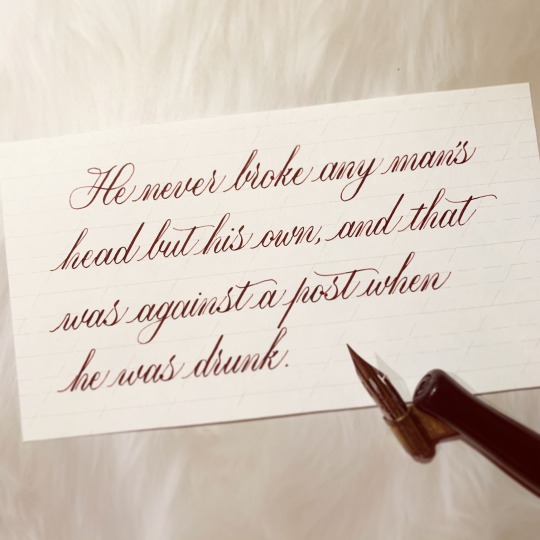 He never broke any man's
head but his own, and that
was against a post when
he was drunk.